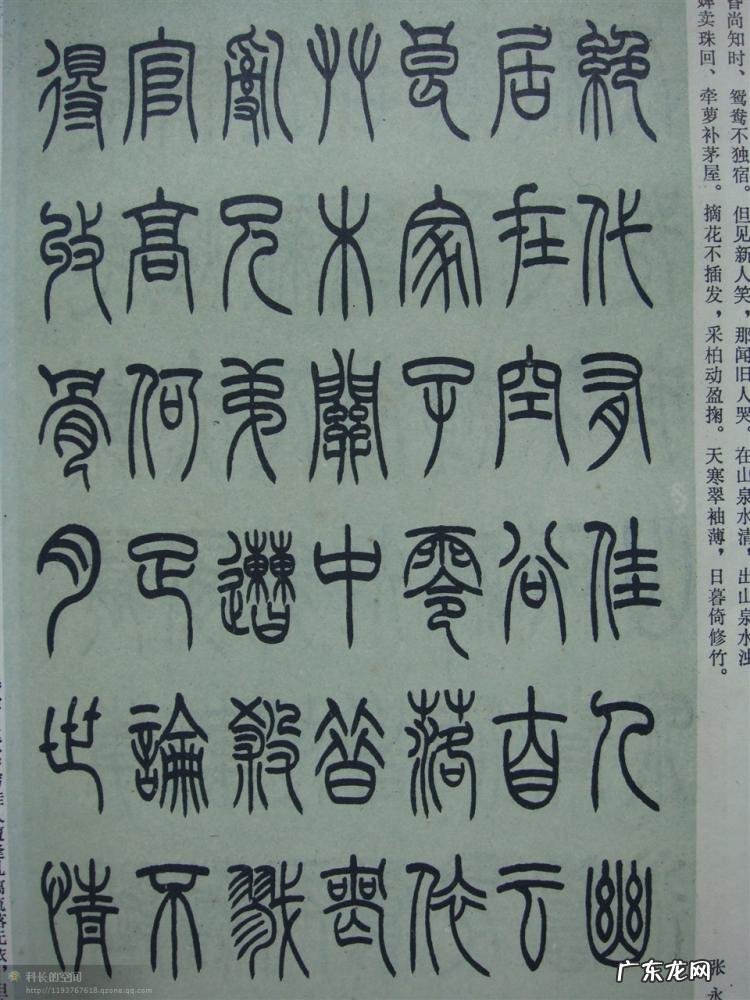 昏尚知时、鸳鸯不独宿。但见新人笑，那闻旧人哭。在山泉水清，出山泉水浊
婢卖珠回、牵萝补茅屋。摘花不插发，采柏动盈掬。天寒翠袖薄，日暮倚修竹。
张永
絕代有佳人幽
居在空谷自云
良家子零落依
艸木關中昔喪
亂兄弟遭殺戮
官高何足論不
得收骨肉世情
科长的空间
http://1193767618.qzone.qq.com
广东龙网